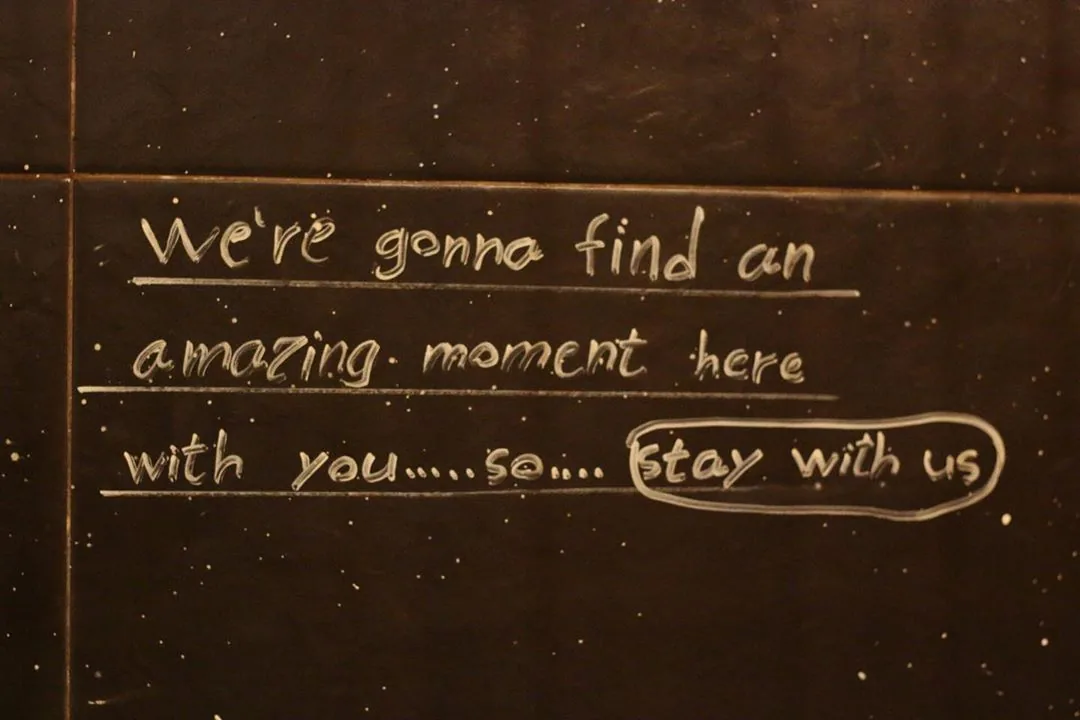 We're gonna find an
amazing moment here
with you.....so.... stay with us